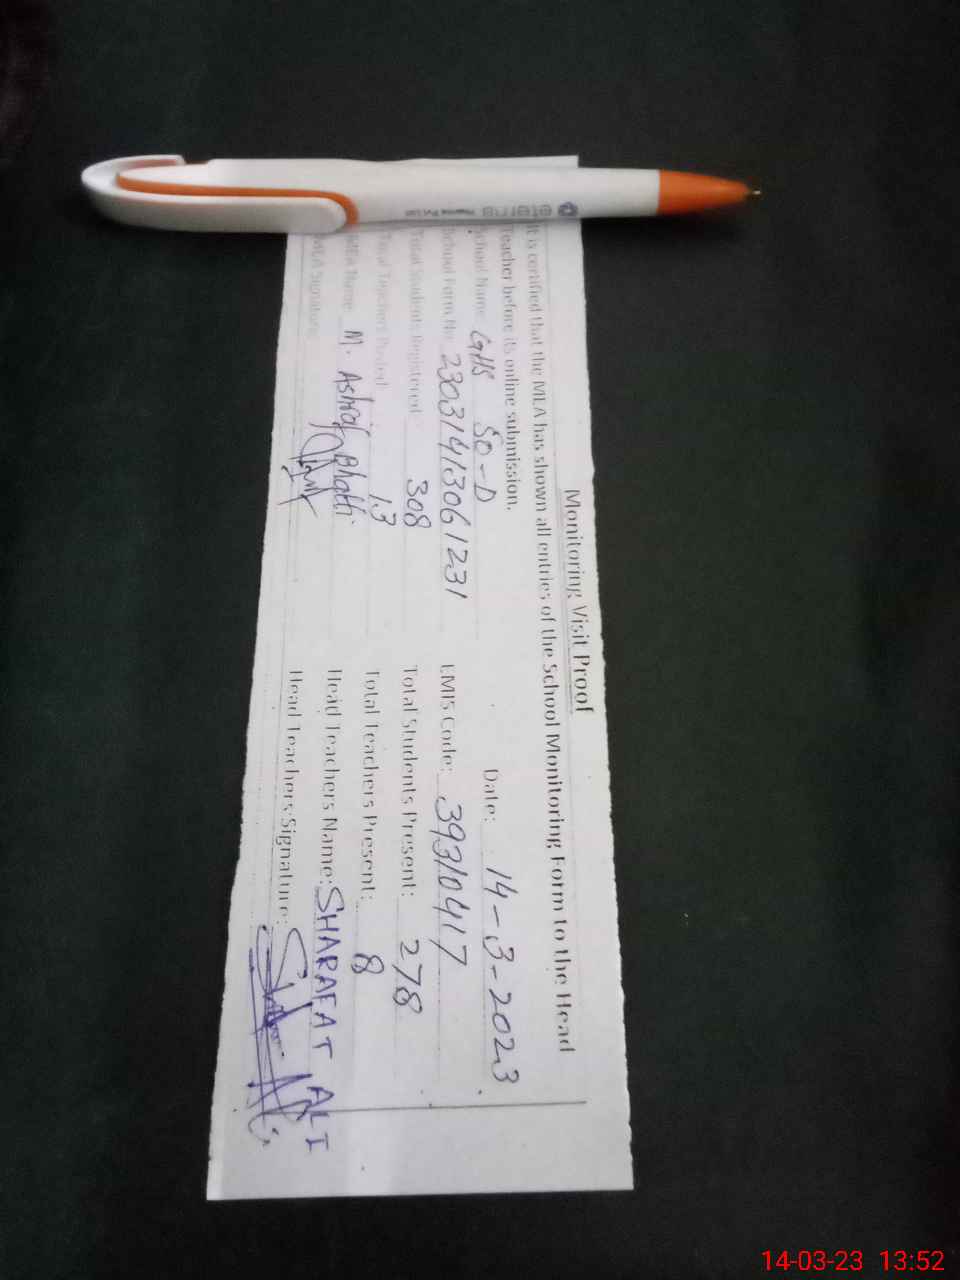 Monitoring Visit Proof
It is certified that the MEA has shown all entries of the School Monitoring Form to the Head
Teacher before its online submission.
Date: 14-3-2023
School Name GHS 50-D
School Form No: 23031413061231 EMIS Code: 39310417
Total Students Registered: 308 Total Students Present: 278
Total Teachers Posted: 13 Total Teachers Present: 8
MEA Name: M. Ashraf Bhatti Head Teachers Name: SHARAFAT ALI
MEA Signature Head Teachers Signature:
eterna
Pharma Pvt Ltd
14-03-23 13:52